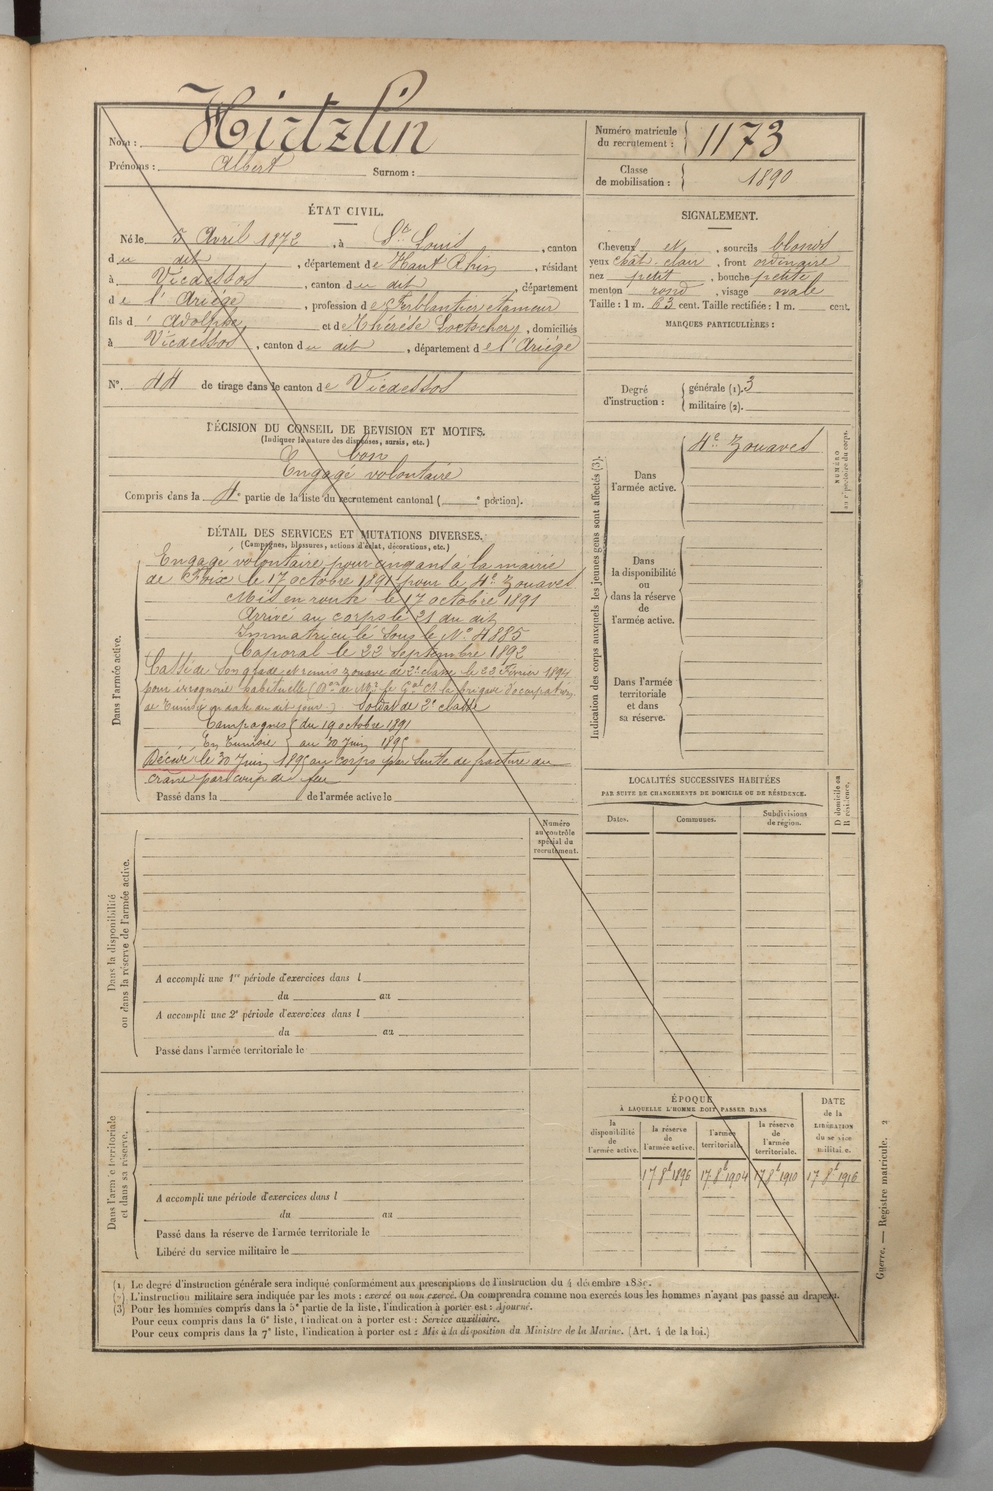 Nom : Hirtzlin
Prénoms : Albert Surnom :
Numéro matricule du recrutement : 1173
Classe de mobilisation : 1890
ÉTAT CIVIL.
Né le 5 Avril 1872, à St Louis, canton
du dit, département de Haut Rhin, résidant
à Vicdessos, canton du dit département
de l'Ariège, profession de Ferblantier étameur
fils d' Adolphe et de Thérèse, domiciliés
à Vicdessos, canton du dit, département de l'Ariège
SIGNALEMENT.
Cheveux et, sourcils blonds
yeux chât. clair, front ordinaire
nez petit, bouche petite
menton rond, visage ovale
Taille : 1 m. 63 cent. Taille rectifiée : 1 m. cent.
MARQUES PARTICULIÈRES :
No. 44 de tirage dans le canton de Vicdessos
Degré d'instruction : générale (1). 3
militaire (2).
DÉCISION DU CONSEIL DE REVISION ET MOTIFS.
(Indiquer la nature des dispenses, sursis, etc.)
bon
Engagé volontaire
Compris dans la 4e partie de la liste du recrutement cantonal ( e portion).
DÉTAIL DES SERVICES ET MUTATIONS DIVERSES.
(Campagnes, blessures, actions d'éclat, décorations, etc.)
Dans l'armée active.
Engagé volontaire pour cinq ans à la mairie
de Foix le 17 octobre 1891 pour le 4e Zouaves
Mis en route le 17 octobre 1891
Arrivé au corps le 21 du dit
Immatriculé sous le No 4885
Caporal le 22 Septembre 1892
Cassé de son grade et remis zouave de 2e classe le 28 Février 1894
pour ivrognerie habituelle (Don de Mr le Gal Ct la brigade d'occupation
de Tunisie en date du dit jour) Soldat de 2e classe
Campagnes { du 19 octobre 1891
En Tunisie } au 30 Juin 1895
Décédé le 30 Juin 1895 au corps par suite de fracture du
crâne par coup de feu
Passé dans la de l'armée active le
Indication des corps auxquels les jeunes gens sont affectés (3).
Dans l'armée active. 4e Zouaves
NUMÉRO au répertoire du corps.
Dans la disponibilité ou dans la réserve de l'armée active.
Dans l'armée territoriale et dans sa réserve.
LOCALITÉS SUCCESSIVES HABITÉES
PAR SUITE DE CHANGEMENTS DE DOMICILE OU DE RÉSIDENCE.
Dates. Communes. Subdivisions de région.
D domicile ou R résidence.
Numéro au contrôle spécial du recrutement.
Dans la disponibilité ou dans la réserve de l'armée active.
A accompli une 1re période d'exercices dans l
du au
A accompli une 2e période d'exercices dans l
du au
Passé dans l'armée territoriale le
Dans l'armée territoriale et dans sa réserve.
A accompli une période d'exercices dans l
du au
Passé dans la réserve de l'armée territoriale le
Libéré du service militaire le
ÉPOQUE
À LAQUELLE L'HOMME DOIT PASSER DANS
la disponibilité de l'armée active.
la réserve de l'armée active.
l'armée territoriale.
la réserve de l'armée territoriale.
DATE de la LIBÉRATION du service militaire.
17 8t 1896 17 8t 1904 17 8t 1910 17 8t 1916
(1) Le degré d'instruction générale sera indiqué conformément aux prescriptions de l'instruction du 4 décembre 1889.
(2) L'instruction militaire sera indiquée par les mots : exercé ou non exercé. On comprendra comme non exercés tous les hommes n'ayant pas passé au drapeau.
(3) Pour les hommes compris dans la 5e partie de la liste, l'indication à porter est : Ajourné.
Pour ceux compris dans la 6e liste, l'indication à porter est : Service auxiliaire.
Pour ceux compris dans la 7e liste, l'indication à porter est : Mis à la disposition du Ministre de la Marine. (Art. 4 de la loi.)
Guerre. — Registre matricule. 2